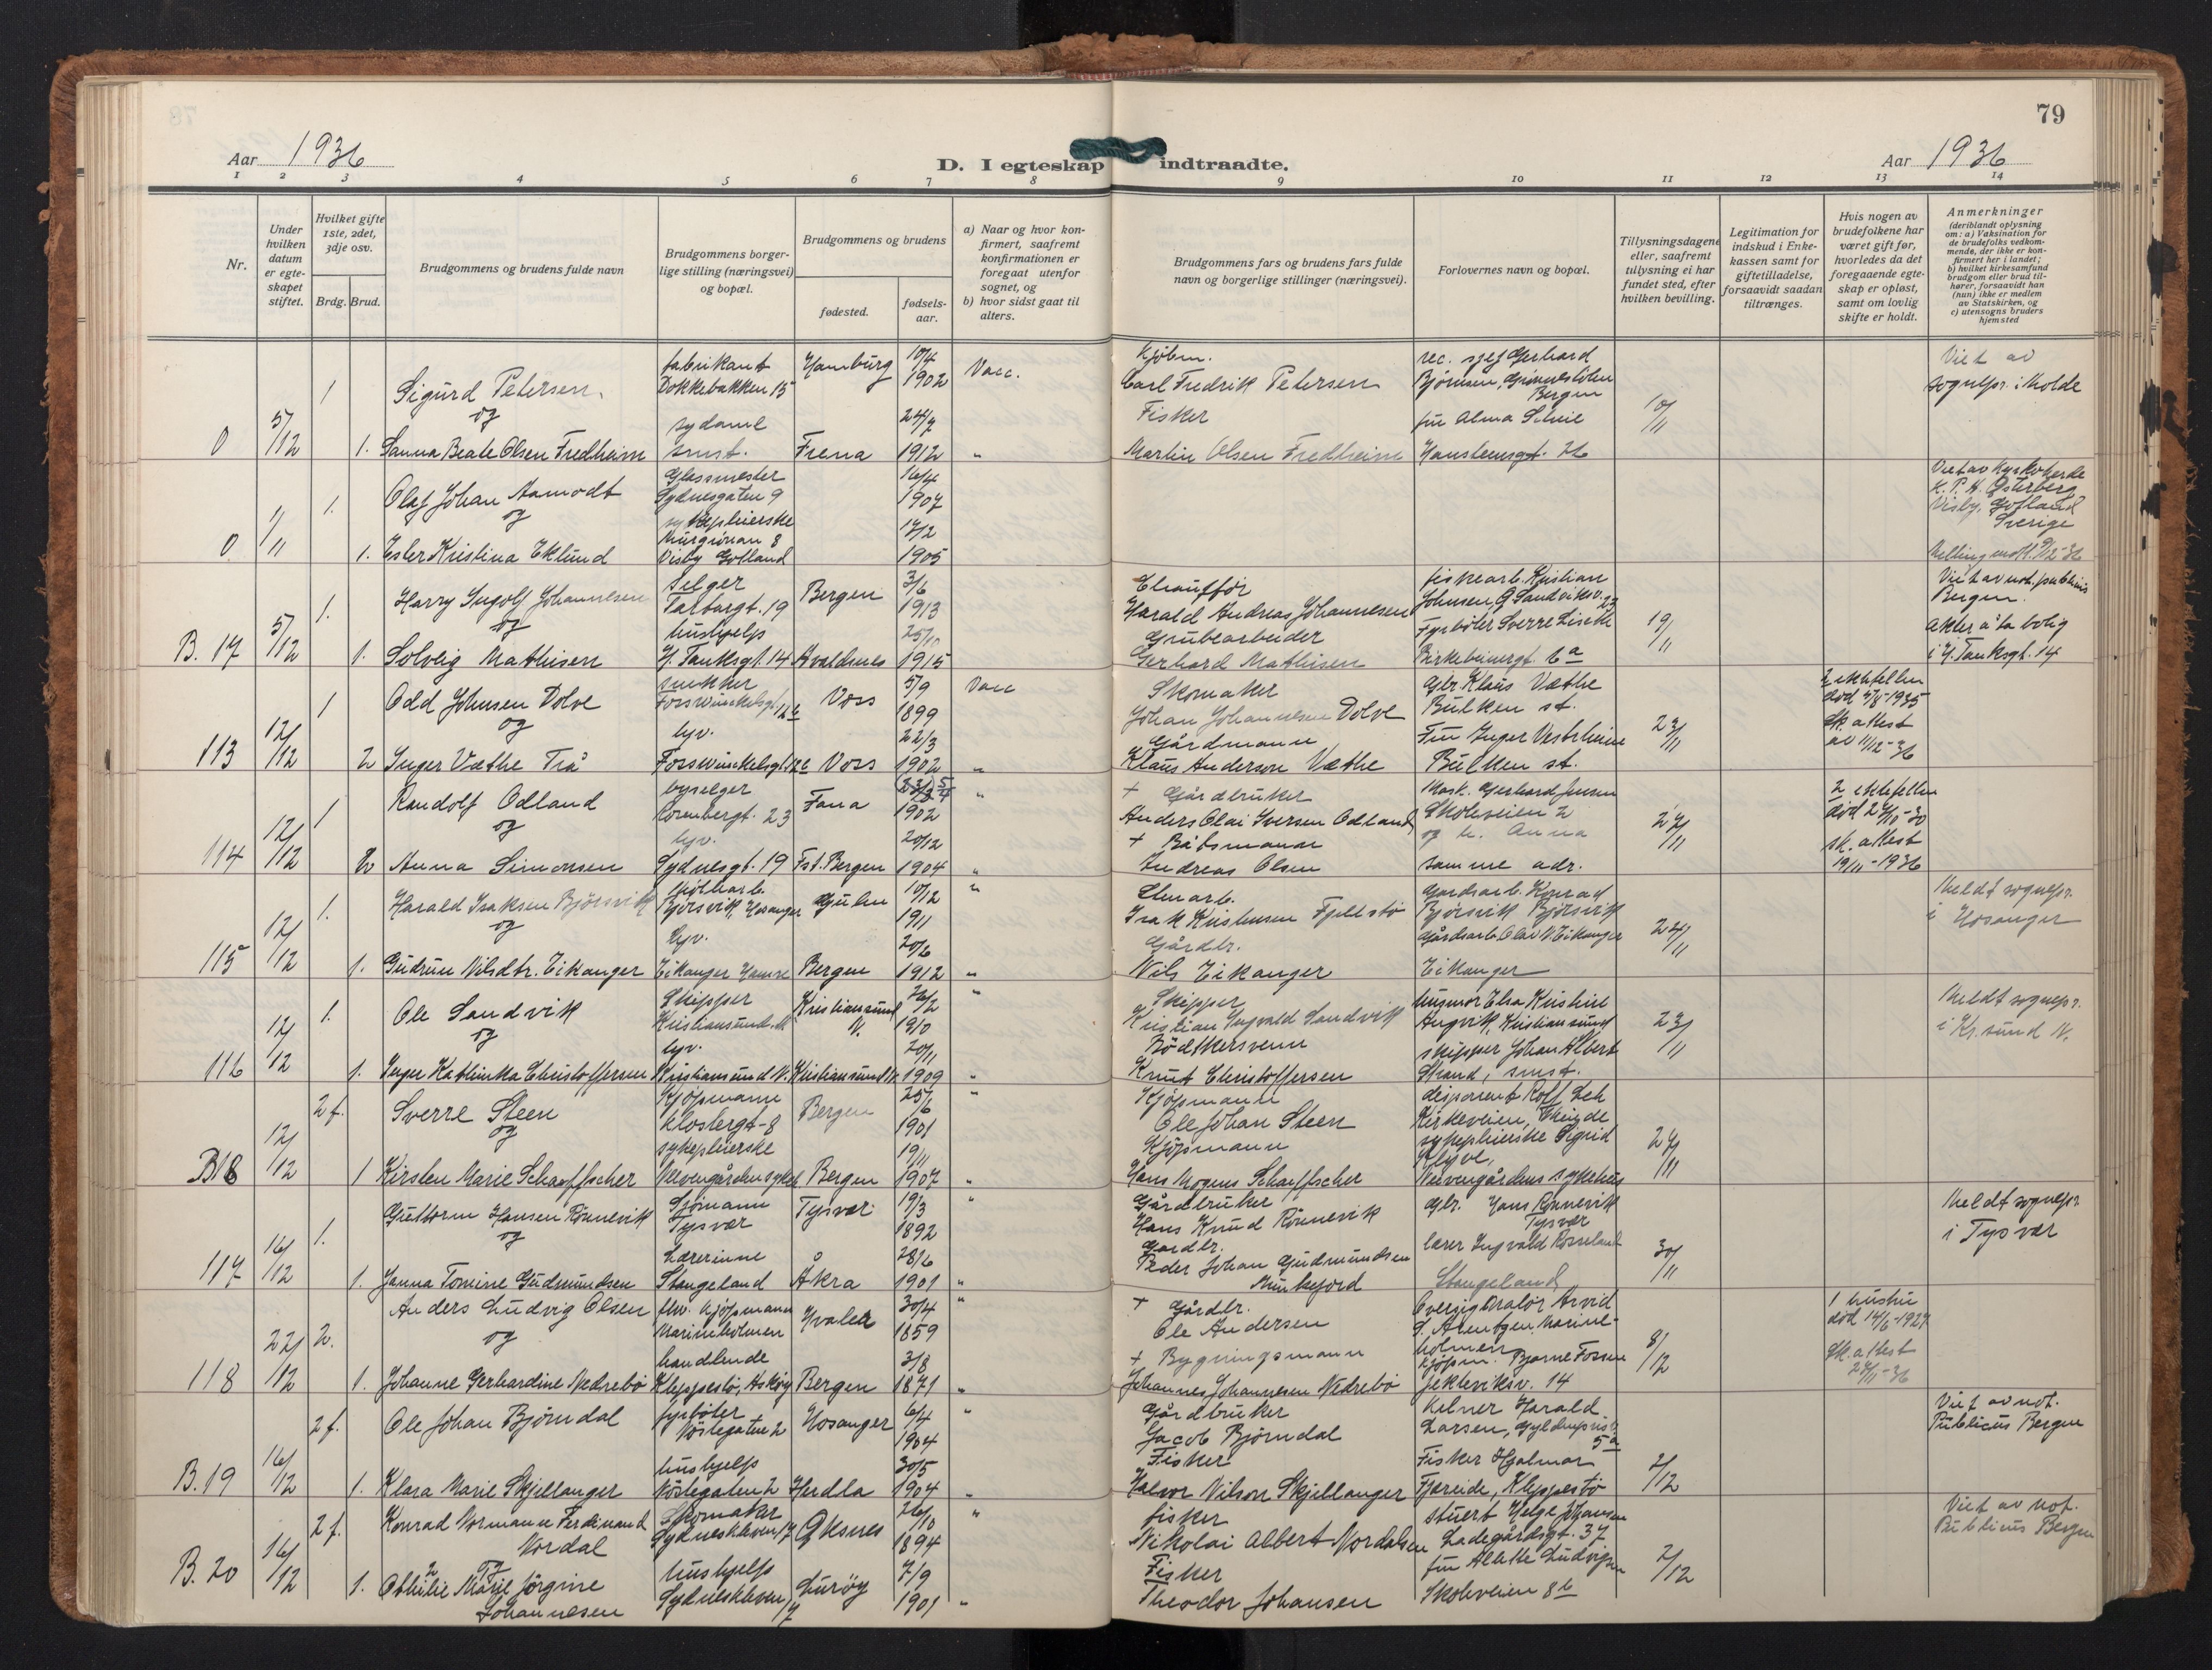 79
Aar 1936
D. I egteskap indtraadte.
Aar 1936
1 2 3 4 5 6 7 8 9 10 11 12 13 14
Nr.
Under hvilken datum er egteskapet stiftet.
Hvilket gifte 1ste, 2det, 3dje osv.
Brdg. Brud.
Brudgommens og brudens fulde navn
Brudgommens borgerlige stilling (næringsvei) og bopæl.
Brudgommens og brudens
fødested.
fødselsaar.
a) Naar og hvor konfirmert, saafremt konfirmationen er foregaat utenfor sognet, og
b) hvor sidst gaat til alters.
Brudgommens fars og brudens fars fulde navn og borgerlige stillinger (næringsvei).
Forlovernes navn og bopæl.
Tillysningsdagene eller, saafremt tillysning ei har fundet sted, efter hvilken bevilling.
Legitimation for indskud i Enkekassen samt for giftetilladelse, forsaavidt saadan tiltrænges.
Hvis nogen av brudefolkene har været gift før, hvorledes da det foregaaende egteskap er opløst, samt om lovlig skifte er holdt.
Anmerkninger (deriblandt oplysning om: a) Vaksination for de brudefolks vedkommende, der ikke er konfirmert her i landet; b) hvilket kirkesamfund brudgom eller brud tilhører, forsaavidt han (hun) ikke er medlem av Statskirken, og c) utensogns bruders hjemsted
0 5/12 1 Sigurd Petersen fabrikant Dokkebakken 15 Hamburg 10/4 1902 Vacc. Kjøbm. Carl Fredrik Petersen Gerhard Bjørnsen, Bergen 10/11 Viet av sognepr. i Molde
og
1. Sanna Beate Olsen Fredheim sydame smst. Fræna 24/7 1912 " Fisker Martin Olsen Fredheim fru Alma Hansteensgt. 26
0 1/11 1. Olaf Johan Aamodt Glassmester Sydnesgaten 9 16/4 1907 Viet av Kyrkoherde K. P. H. Österberg Visby, Gotland Sverige
og
1. Ester Kristina Eklund sykepleierske Murgrönan 8 Visby Gotland 14/2 1905
B. 17 5/12 1. Harry Ingolf Johannesen selger Tartargt. 19 Bergen 3/6 1913 Chauffør Harald Andreas Johannesen fiskearb. Kristian Johnsen, G Sandviksv. 23 19/11 Viet av not. publicus Bergen.
og
1. Solveig Mathisen hushjelp H. Tanksgt. 14 Avaldsnes 25/10 1915 Grubearbeider Gerhard Mathisen Fyrbøter Sverre Birkebeinergt. 6a akter å ta bolig i H. Tanksgt. 14
113 12/12 1 Odd Johnsen Dolve snekker Voss 5/9 1899 Vacc Skomaker Johan Johannesen Dolve Gbr. Klaus Væthe Bulken st. 23/11 2 ektefellen død 5/8-1935 sk. attest av 11/12-36
og
2 Inger Væthe Trå hv. Voss 22/3 1902 " Gårdmann Klaus Anderson Væthe Fru Inger Vestrheim Bulken st.
114 12/12 1 Randolf Odland byselger Rosenbergt. 23 Fana 1902 " + Gårdbruker Anders Olai Iversen Odland Mask. Gerhard Jensen Skoleveien 2 27/11 2 ektefellen død 24/10-30 sk. attest 19/11-1936
og
2 Anna Simonsen hv. Sydnesgt. 19 Fst. Bergen 20/12 1904 " + Båtsmann Andreas Olsen og h. Anna samme adr.
115 12/12 1. Harald Isaksen Bjørsvik Bjørsvik, Hosanger Gulen 10/12 1911 " Elmarb. Isak Kristensen Fjellstø Gardsarb. Konrad Bjørsvik Bjørsvik 24/11 Meldt sognepr. i Hosanger
og
1. Gudrun Nilsdtr. Eikanger hv. Eikanger Hamre Bergen 20/6 1912 " Gårdbr. Nils Eikanger Gårdsarb. Olav N Eikanger Eikanger
116 12/12 1. Ole Sandvik Skipper Kristiansund N. Kristiansund N. 26/2 1910 " Skipper Kristian Ingvald Sandvik husmor Elsa Kristine Angvik, Kristiansund 23/11 Meldt sognepr. i Kr.sund N.
og
1. Inger Kathinka Christoffersen hv. Kristiansund N. Kristiansund N. 20/11 1909 " Bødtkersvenn Knut Christoffersen skipper Johan Albert Strand, smst.
B18 12/12 2 f. Sverre Steen Kjøpmann Klostergt-8 Bergen 25/6 1901 " Kjøpmann Ole Johan Steen disponent Rolf Zeh Kirkeveien, 27/11
og
1 Kirsten Marie Schaeffscher sykepleierske Bergen 19/11 1907 " Kjøpmann Hans Mogens Schaeffscher sykepleierske Sigrid Kleive,
117 16/12 1. Guttorm Hansen Rønnevik Sjømann Tysvær Tysvær 19/3 1892 " Gårdbruker Hans Knud Rønnevik Gbr. Hans Rønnevik Tysvær 30/11 Meldt sognepr. i Tysvær
og
1. Janna Tomine Gudmundsen Lærerinne Stangeland Åkra 28/6 1901 " Gardbr. Peder Johan Gudmundsen Munkejord lærer Ingvald Rosseland Stangeland
118 22/12 2. Anders Ludvig Olsen fhv. kjøpmann Marineholmen Hvaler 30/4 1859 " + Gårdbr. Ole Andersen Arvid S. Arentzen, Marineholmen 8/12 1 hustru død 14/6-1927 Sk. attest 24/11-36
og
1. Johanne Gerhardine Nedrebø handlende Kleppestø, Askøy Bergen 3/8 1871 " + Bygningsmann Johannes Johannesen Nedrebø kjøpm. Bjarne Fosse Jekteviksv. 14
B. 19 16/12 2 f. Ole Johan Bjørndal fyrbøter Nøstegaten 2 Hosanger 6/4 1904 " Gårdbruker Jacob Bjørndal Kelner Harald Larsen, 5a 2/12 Viet av not. Publicus Bergen
1. Klara Marie Skjellanger hushjelp Nøstegaten 2 Herdla 30/5 1904 " Fisker Halvor Nilson Skjellanger Fisker Hjalmar Fjæreide, Kleppestø
B. 20 16/12 2 f. Konrad Normann Ferdinand Nordal Skomaker Sydneskleven 17 Øksnes 26/10 1894 " fisker Nikolai Albert Nordalsen stuert Helge Johansen Ladegårdsgt. 37 2/12 Viet av not. Publicus Bergen
og
1. Othilie Marie Jørgine Johannesen hushjelp Sydneskleven 17 Lurøy 7/9 1901 " Fisker Theodor Johansen fru Alette Ludvigsen Skoleveien 8b